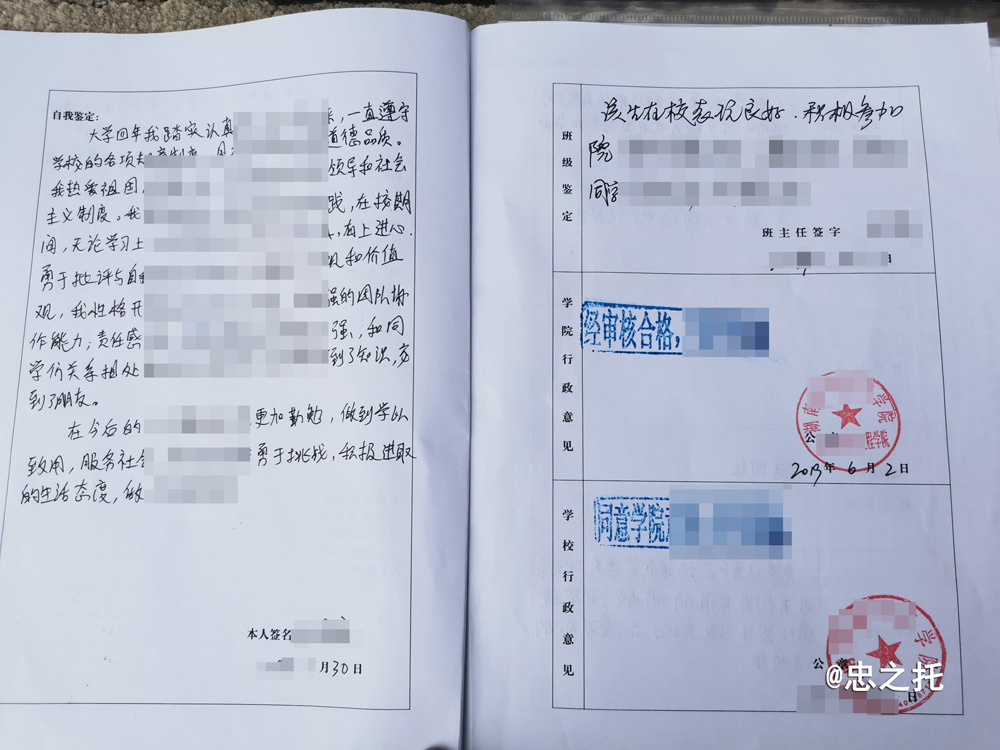 自我鉴定:
大学四年我踏实认真 一直遵守
学校的各项 道德品质。
我热爱祖国, 领导和社会
主义制度。我 践,在校期
间,无论学习上 ,向上进心.
勇于批评与自 和价值
观,我性格开 强的团队协
作能力;责任感 强,和同
学们关系相处 到了知识,交
到了朋友。
在今后的 更加勤勉,做到学以
致用,服务社会 勇于挑战,积极进取
的生活态度,做
本人签名
月30日
班级鉴定
该生在校表现良好.积极参加
院
同学
班主任签字
日
学院行政意见
经审核合格,
湖南 学院
公
2019年6月2日
学校行政意见
同意学院
学院
公
日
@忠之托